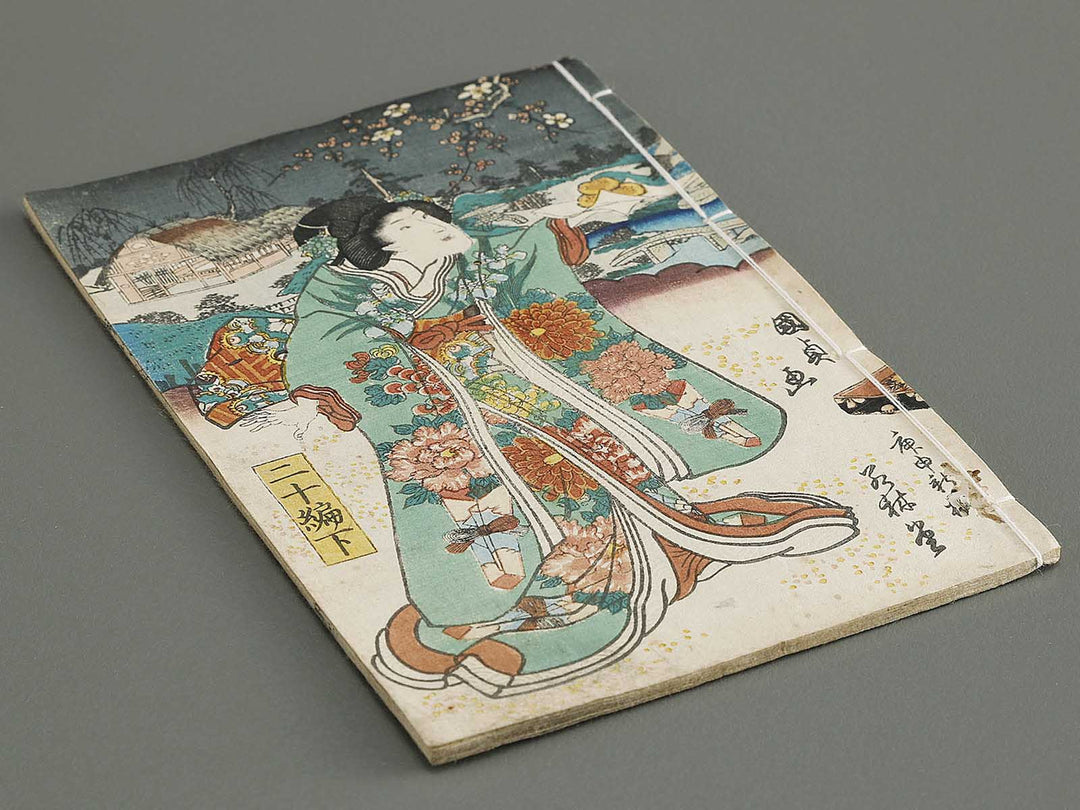 國貞画
庚申新板
二十編下